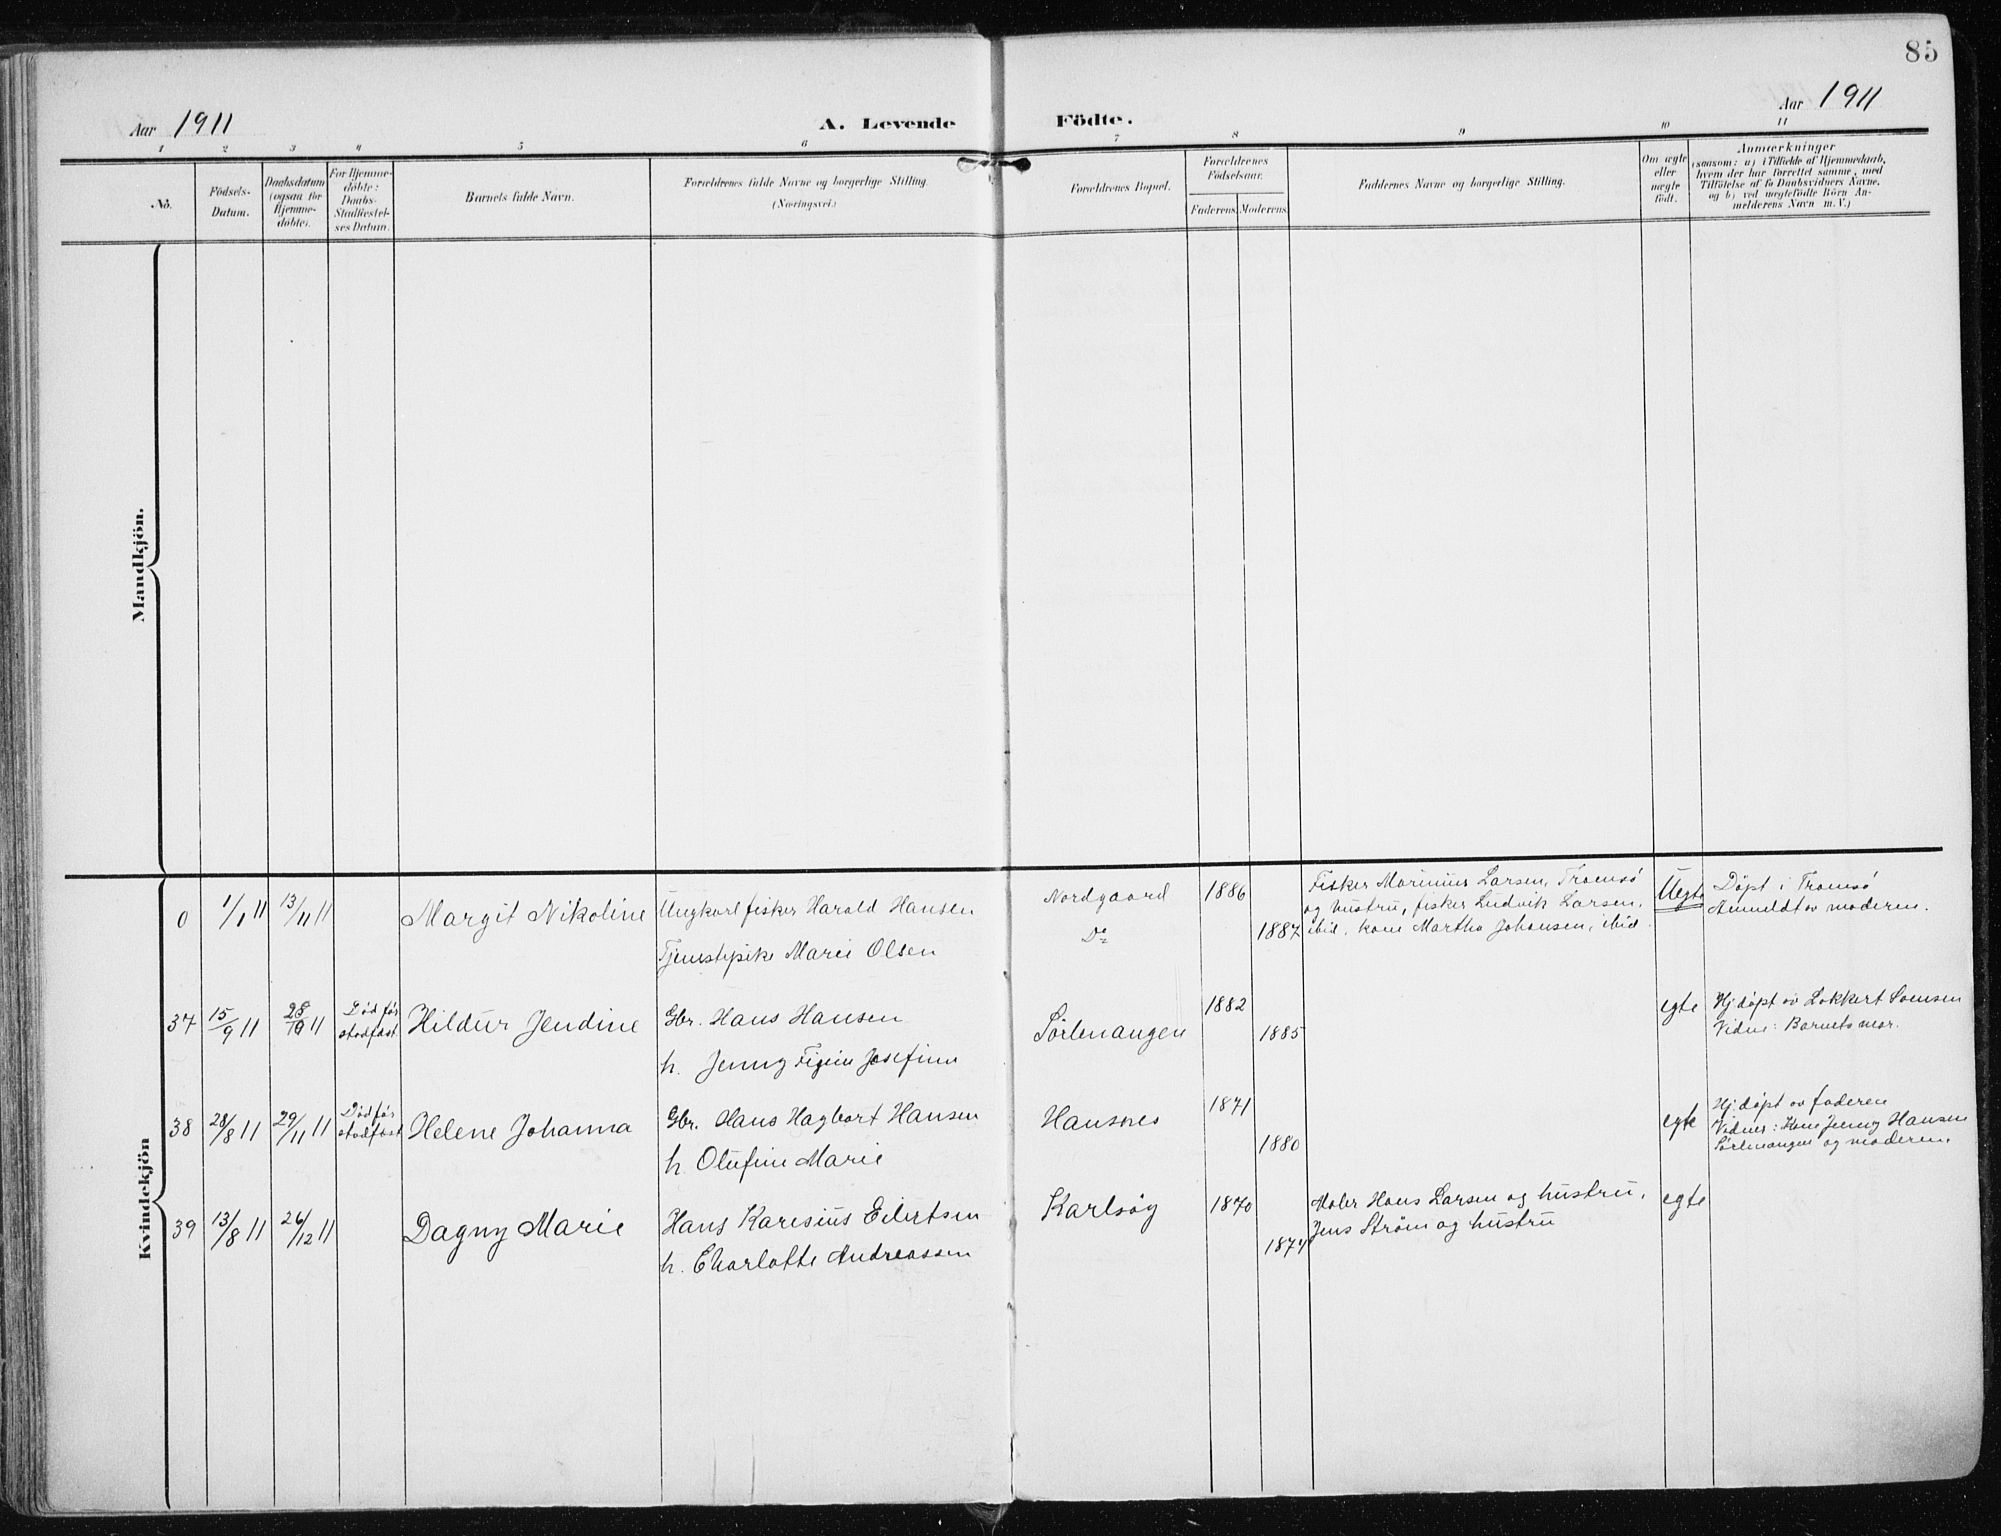 85
Aar 1911
A. Levende Födte.
Aar 1911
1 2 3 4 5 6 7 8 9 10 11
No.
Födsels-
Datum.
Daabsdatum
(ogsaa for
Hjemme-
döbte).
For Hjemme-
döbte:
Daabs-
Stadfæstel-
ses Datum.
Barnets fulde Navn.
Forældrenes fulde Navne og borgerlige Stilling.
(Næringsvei.)
Forældrenes Bopæl.
Forældrenes
Födselsaar.
Faderens. Moderens.
Faddernes Navne og borgerlige Stilling.
Om ægte
eller
uægte
født.
Anmærkninger
(saasom: a) i Tilfælde af Hjemmedaab,
hvem der har forrettet samme, med
Tilföielse af to Daabsvidners Navne,
og b) ved uægtefödte Börn An-
melderens Navn m. V.)
Mandkjön.
Kvindekjön
0 1/1 11 13/11 11 Margit Nikoline
Ungkarl fisker Harald Hansen
Tjenestepike Marie Olsen
Nordgaard
Do
1886
1887
Fisker Marinius Larsen, Tromsø
og hustru, fisker Ludvik Larsen,
ibid, kone Martha Johansen, ibid.
Uegte
Døpt i Tromsø
Anmeldt av moderen.
37 15/9 11 28/10 11
Død før
stadfæst
Hildur Jendine
Gbr. Hans Hansen
h. Jenny Josefine
Sørlenangen
1882
1885
egte
Hj.døpt av Lokkert Soensen
Vidne: Barnets mor.
38 28/8 11 29/11 11
Død før
stadfæst
Helene Johanna
Gbr. Hans Hagbart Hansen
h. Olufine Marie
Hansnes
1871
1880
egte
Hj.døpt av faderen
Vidner: Kone Jenny Hansen
Sørlenangen og moderen.
39 13/8 11 26/12 11
Dagny Marie
Hans Karesius Eilertsen
h. Charlotte Andreassen
Karlsøy
1870
1874
Maler Hans Larsen og hustru,
Jens Strøm og hustru
egte